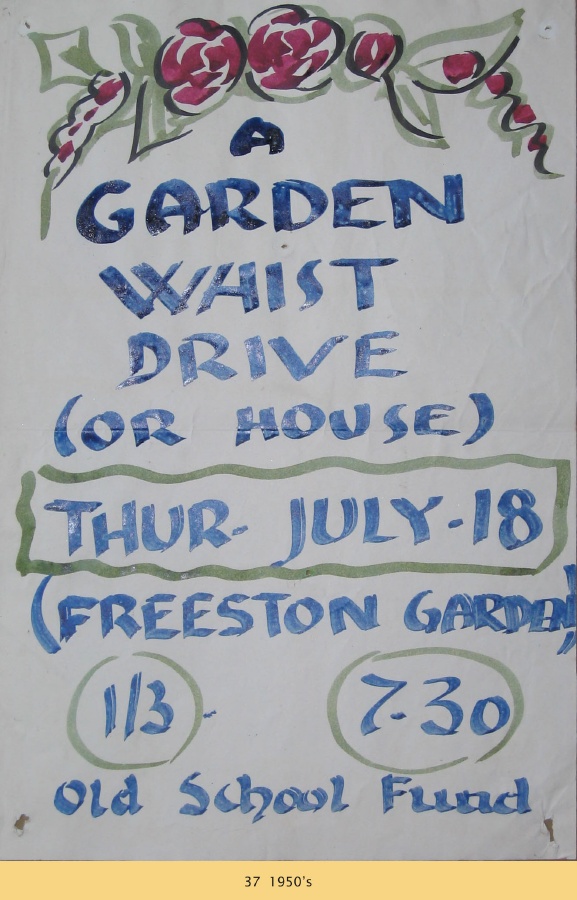 A
GARDEN
WHIST
DRIVE
(OR HOUSE)
THUR- JULY-18
(FREESTON GARDEN)
1/3- 7-30
Old School Fund
37 1950's